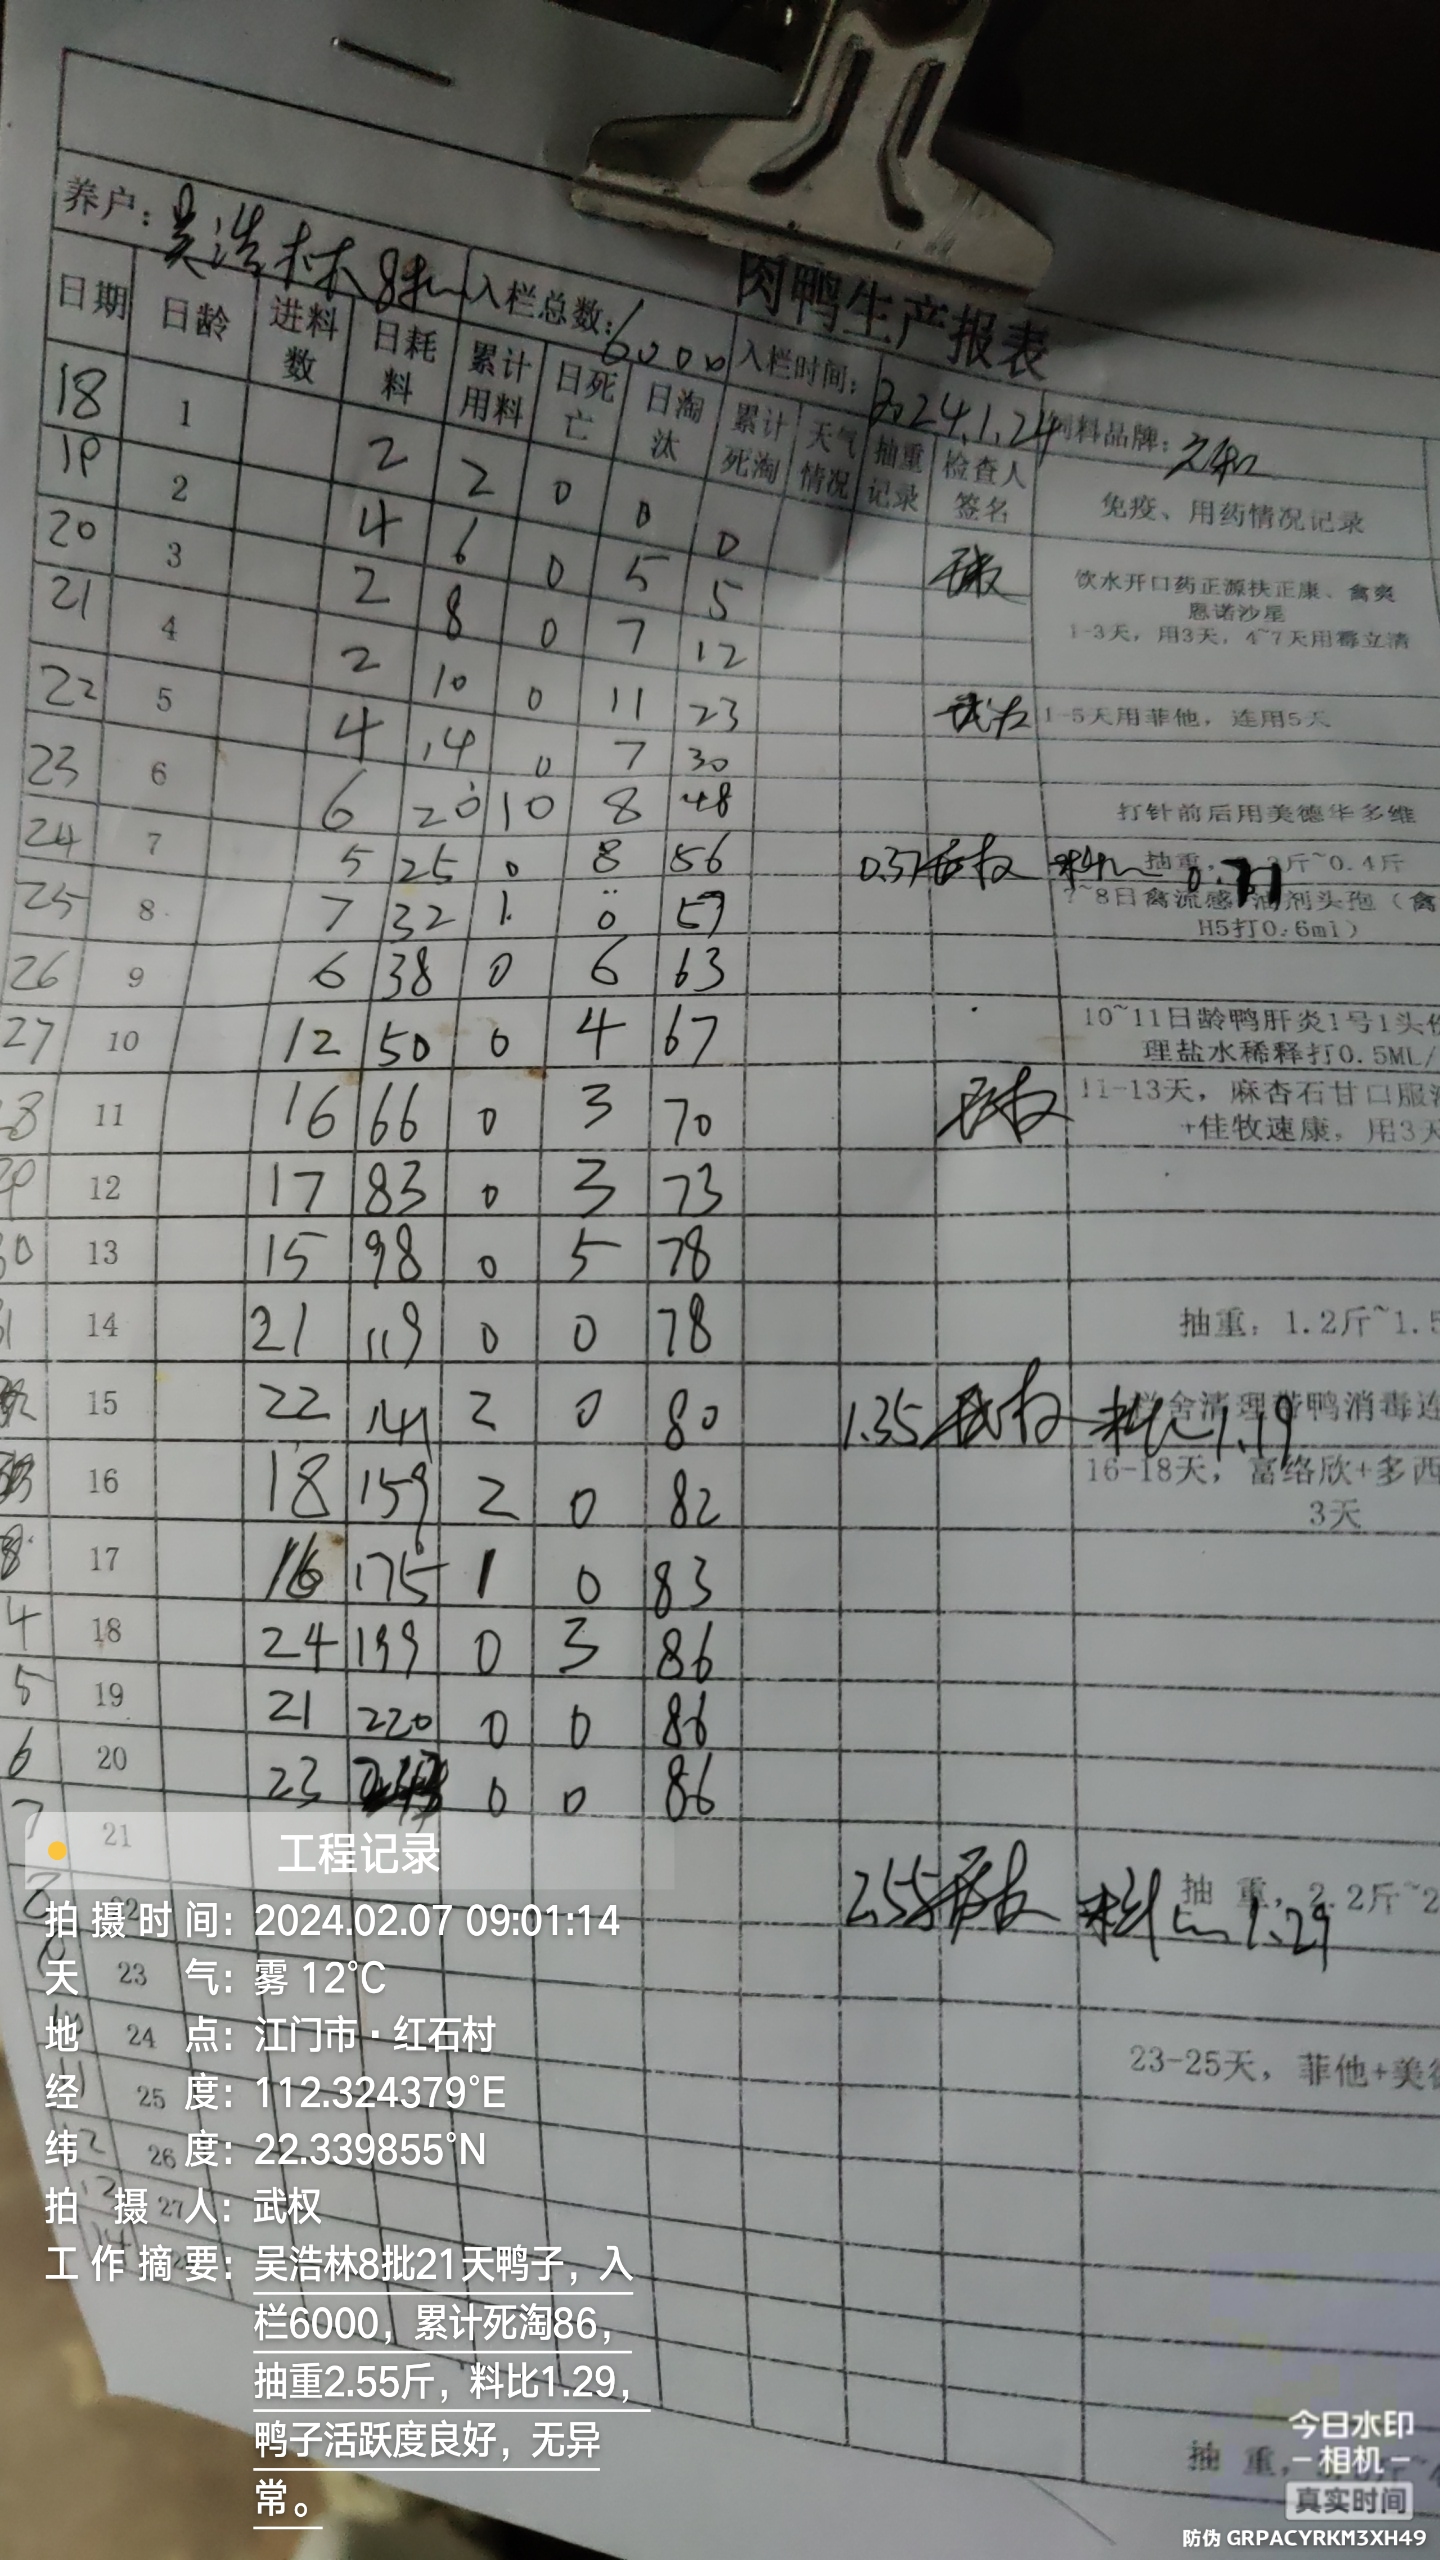 肉鸭生产报表
养户：吴浩林8批 入栏总数：6000 入栏时间：2024.1.24 饲料品牌：
日期 日龄 进料数 日耗料 累计用料 日死亡 日淘汰 累计死淘 天气情况 抽重记录 检查人签名 免疫、用药情况记录
18 1 2 2 0 0 0
19 2 4 6 0 5 5
20 3 2 8 0 7 12
21 4 2 10 0 11 23
22 5 4 14 0 7 30
23 6 6 20 10 8 48
24 7 5 25 0 8 56
25 8 7 32 1 0 57
26 9 6 38 0 6 63
27 10 12 50 0 4 67
28 11 16 66 0 3 70
29 12 17 83 0 3 73
30 13 15 98 0 5 78
31 14 21 119 0 0 78
15 22 141 2 0 80
16 18 159 2 0 82
17 16 175 1 0 83
4 18 24 199 0 3 86
5 19 21 220 0 0 86
6 20 23 0 0 86
7 21
23
24
11 25
12 26
27
饮水开口药正源扶正康、禽爽
恩诺沙星
1-3天，用3天，4~7天用霉立清
1-5天用菲他，连用5天
打针前后用美德华多维
0.37 武权 料比 0.71
抽重，0.3斤~0.4斤
7~8日禽流感
油剂头孢（禽
H5打0.6ml）
10~11日龄鸭肝炎1号1头份
理盐水稀释打0.5ML/
武权
11-13天，麻杏石甘口服液
+佳牧速康，用3天
抽重：1.2斤~1.5
1.35 武权 料比1.19
栏舍清理带鸭消毒连
16-18天，富络欣+多西
3天
2.55 武权 料比1.29
抽 重，2.2斤~2
23-25天，菲他+美德
抽 重，
工程记录
拍摄时间：2024.02.07 09:01:14
天 气：雾 12℃
地 点：江门市·红石村
经 度：112.324379°E
纬 度：22.339855°N
拍 摄 人：武权
工作摘要：吴浩林8批21天鸭子，入
栏6000，累计死淘86，
抽重2.55斤，料比1.29，
鸭子活跃度良好，无异
常。
今日水印
相机
真实时间
防伪 GRPACYRKM3XH49